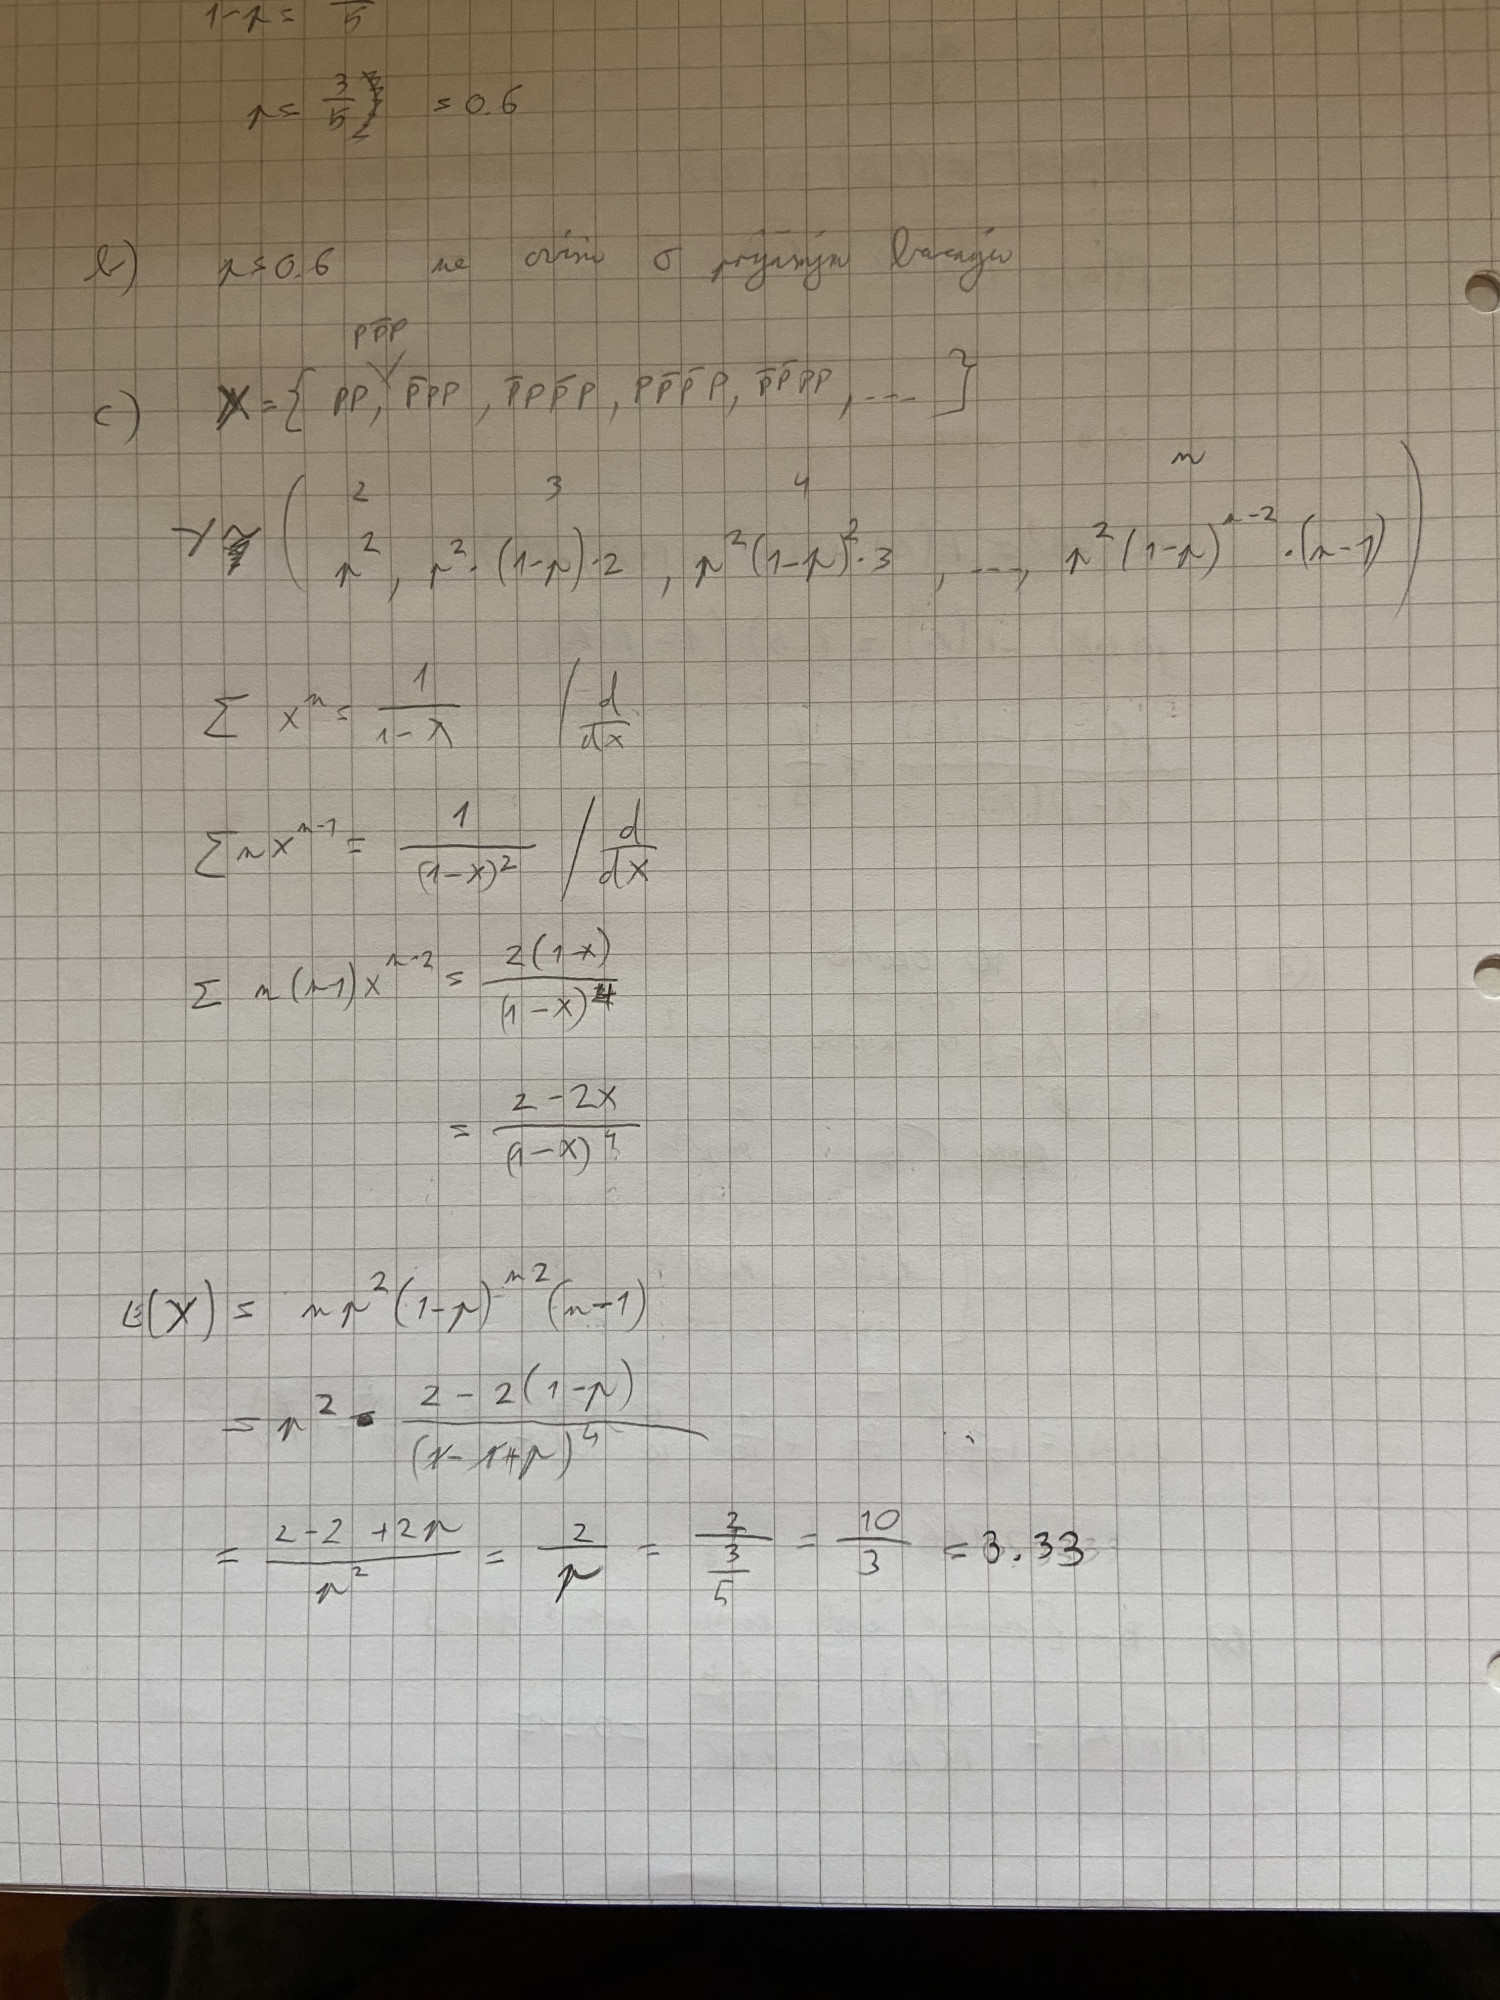 1-p = /5
p = 3/5 = 0.6
b) p = 0.6 ne ovisi o bacanju
c) X = { PP, PP̄P, P̄PP, P̄PP̄P, PP̄P̄P, P̄P̄PP, .... }
2 3 4 n
Y ( p², p²·(1-p)·2, p²(1-p)²·3, ...., p²(1-p)^(n-2)·(n-1) )
Σ x^n = 1/(1-x) / d/dx
Σ n x^(n-1) = 1/(1-x)² / d/dx
Σ n(n-1)x^(n-2) = 2(1-x)/(1-x)^4
= (2-2x)/(1-x)^4
E(Y) = n p² (1-p)^(n-2) (n-1)
= p² · (2-2(1-p))/(1-1+p)^4
= (2-2+2p)/p² = 2/p = 2/(3/5) = 10/3 = 3.33